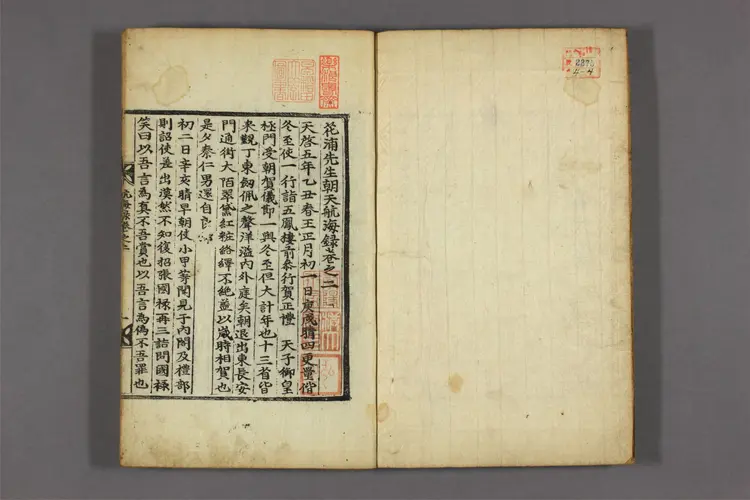 花浦先生朝天航海錄卷之二
天啓五年乙丑春王正月初一日庚戌晴四更量偕
冬至使一行詣五鳳樓前叅行賀正禮 天子御皇
極門受朝賀儀節一與冬至但大計年也十三省皆
來覲丁東劒佩之聲洋溢内外庭矣朝退出東長安
門通術大陌翠黛紅粧絡繹不絶盖以歲時相賀也
是夕秦仁男還自
初二日辛亥晴早朝使小甲等閱見于内閤及禮部
則詔使差出漠然不知復招張國祿再三詰問國祿
笑曰以吾言為真不吾賞也以吾言為偽不吾罪也
航海錄卷之二